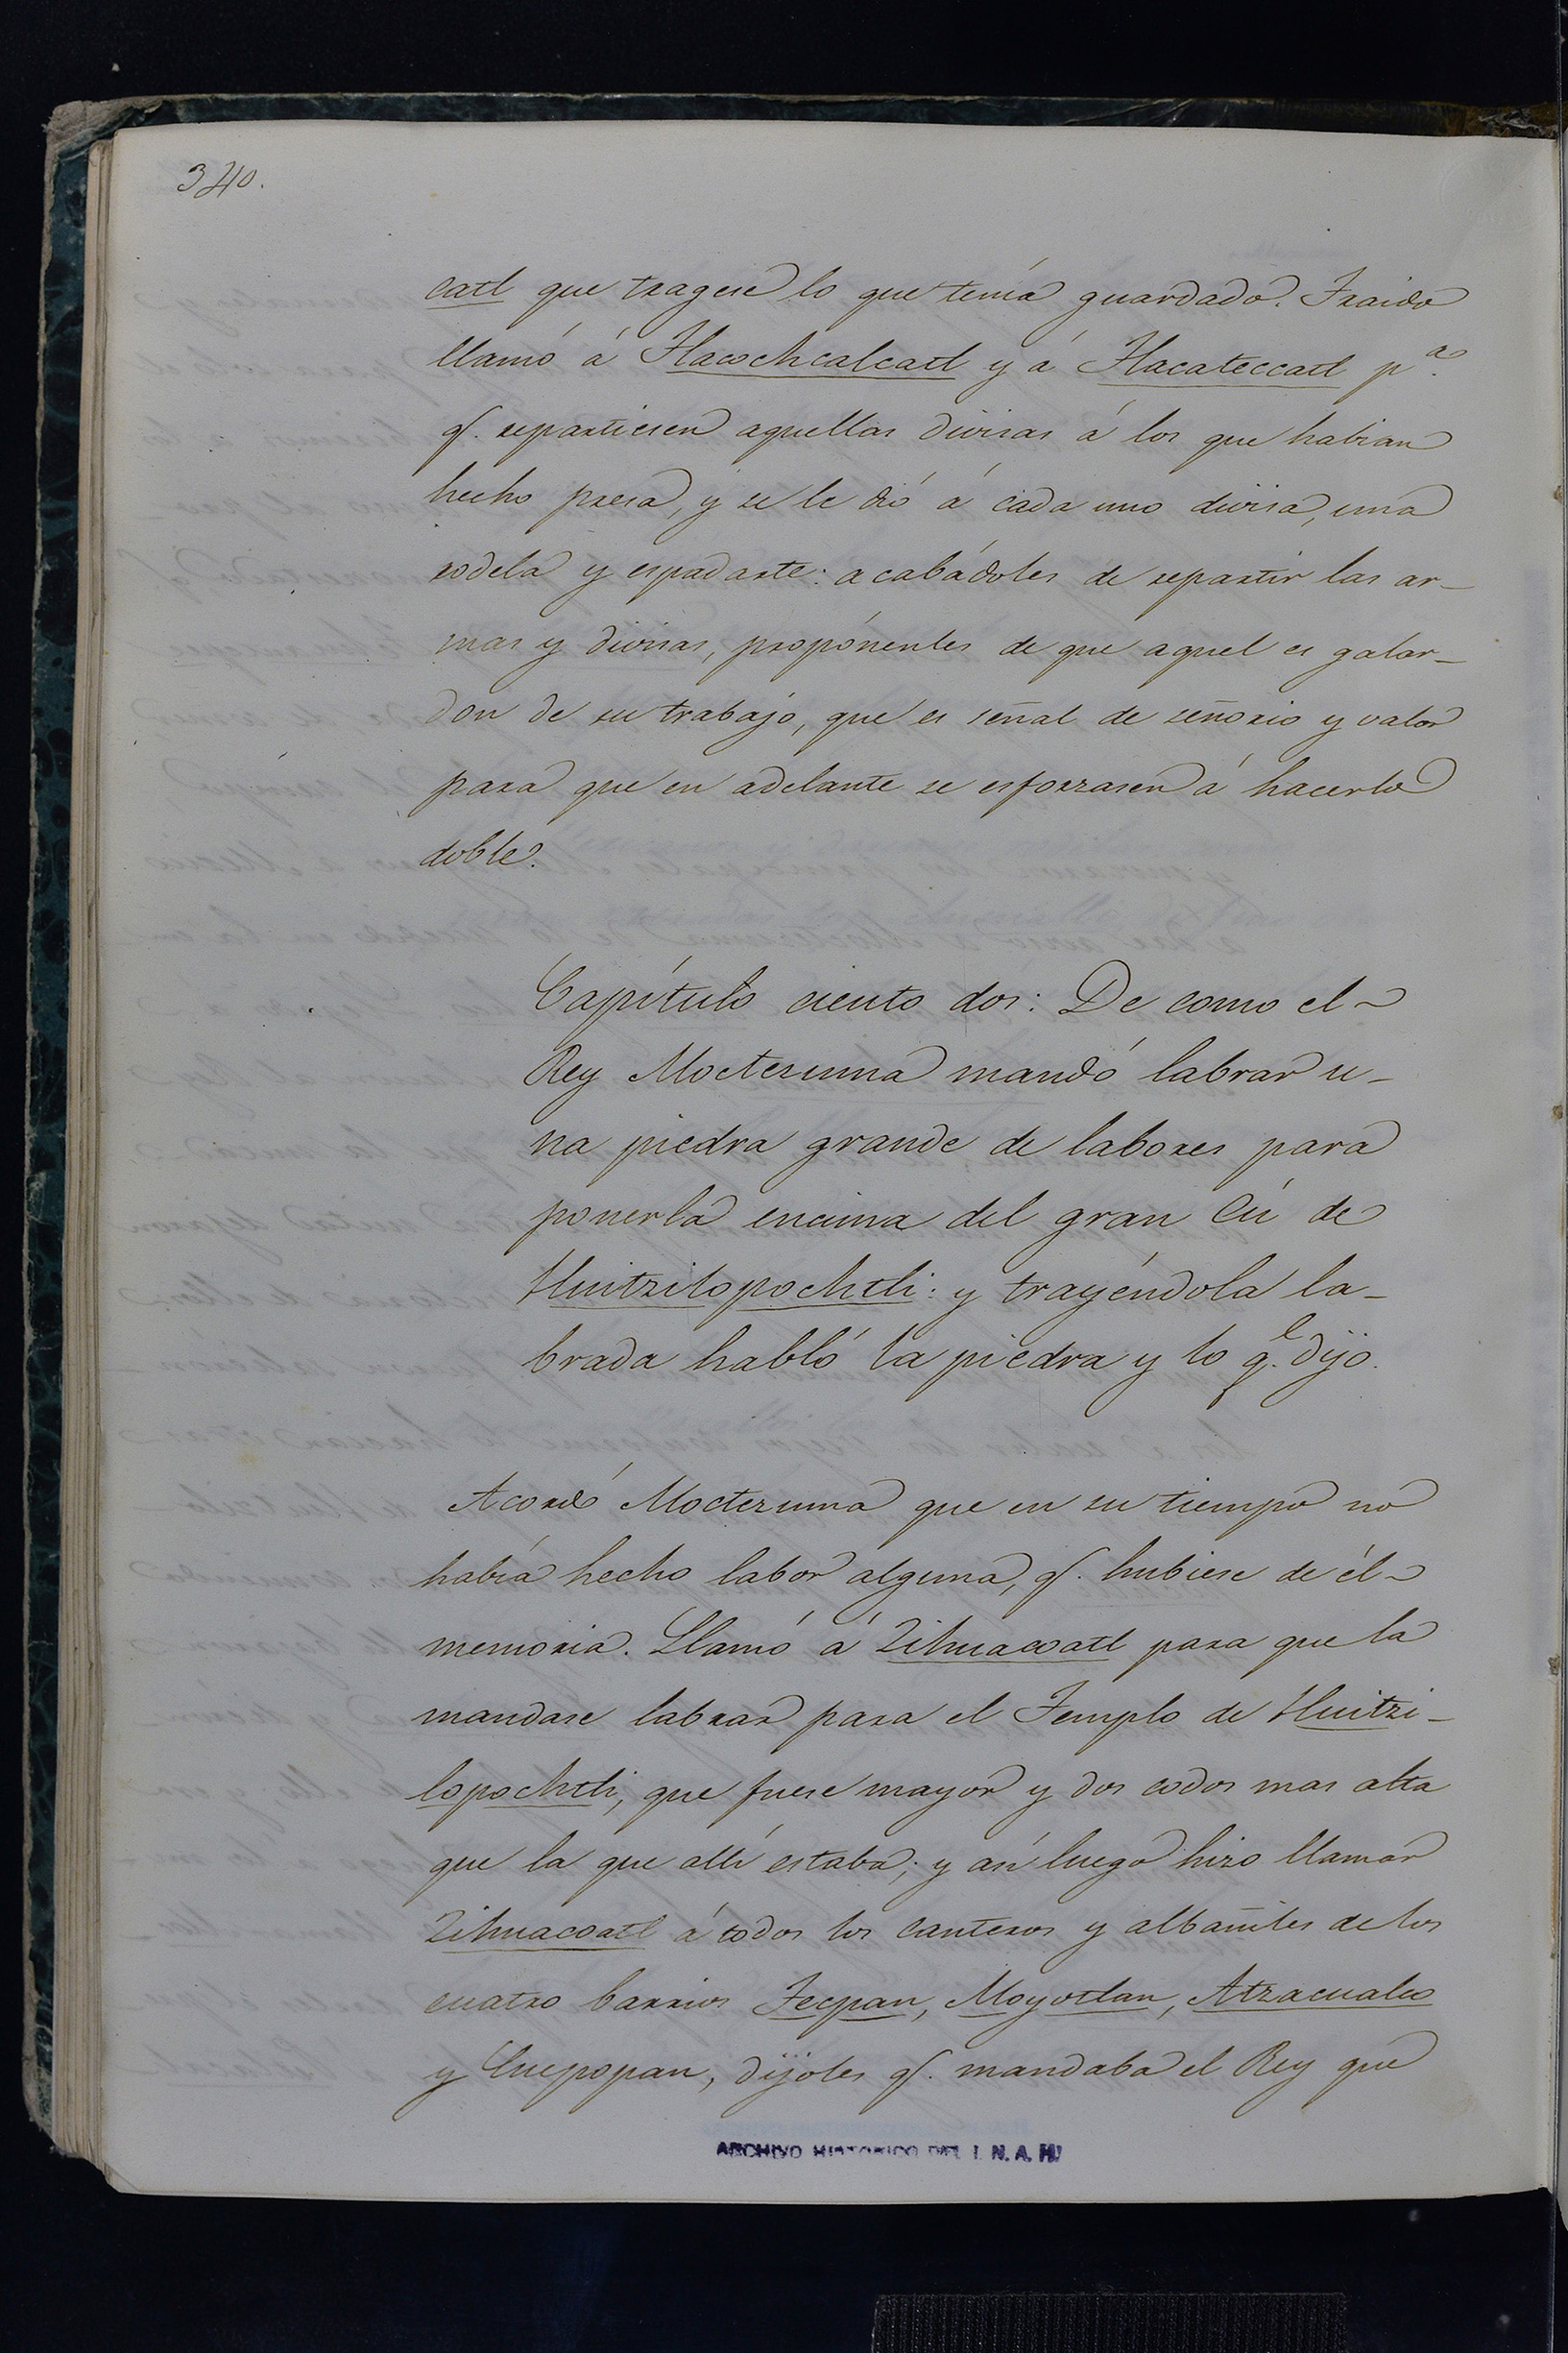 340.
catl que tragese lo que tenía guardado. Traido
llamó á Tlacochcalcatl y á Tlacateccatl p.ª
q. repartiesen aquellas divisas á los que habian
hecho presa, y se le dió á cada uno divisa, una
rodela y espadarte: acabádoles de repartir las ar-
mas y divisas, propónenles de que aquel es galar-
don de su trabajo, que es señal de señorio y valor
para que en adelante se esforzasen á hacerlo
doble.
Capítulo ciento dos: De como el
Rey Moctezuma mandó labrar u-
na piedra grande de labores para
ponerla encima del gran Cú de
Huitzilopochtli: y trayéndola la-
brada habló la piedra y lo q.e dijo.
Acordó Moctezuma que en su tiempo no
había hecho labor alguna, q. hubiese de él
memoria. Llamó á Zihuacoatl para que la
mandase labrar para el Templo de Huitzi-
lopochtli, que fuese mayor y dos codos mas alta
que la que allí estaba; y así luego hizo llamar
Zihuacoatl á todos los canteros y albañiles de los
cuatro barrios Tecpan, Moyotlan, Atzacualco
y Cuepopan, díjoles q. mandaba el Rey que
ARCHIVO HISTORICO DEL I. N. A. H.